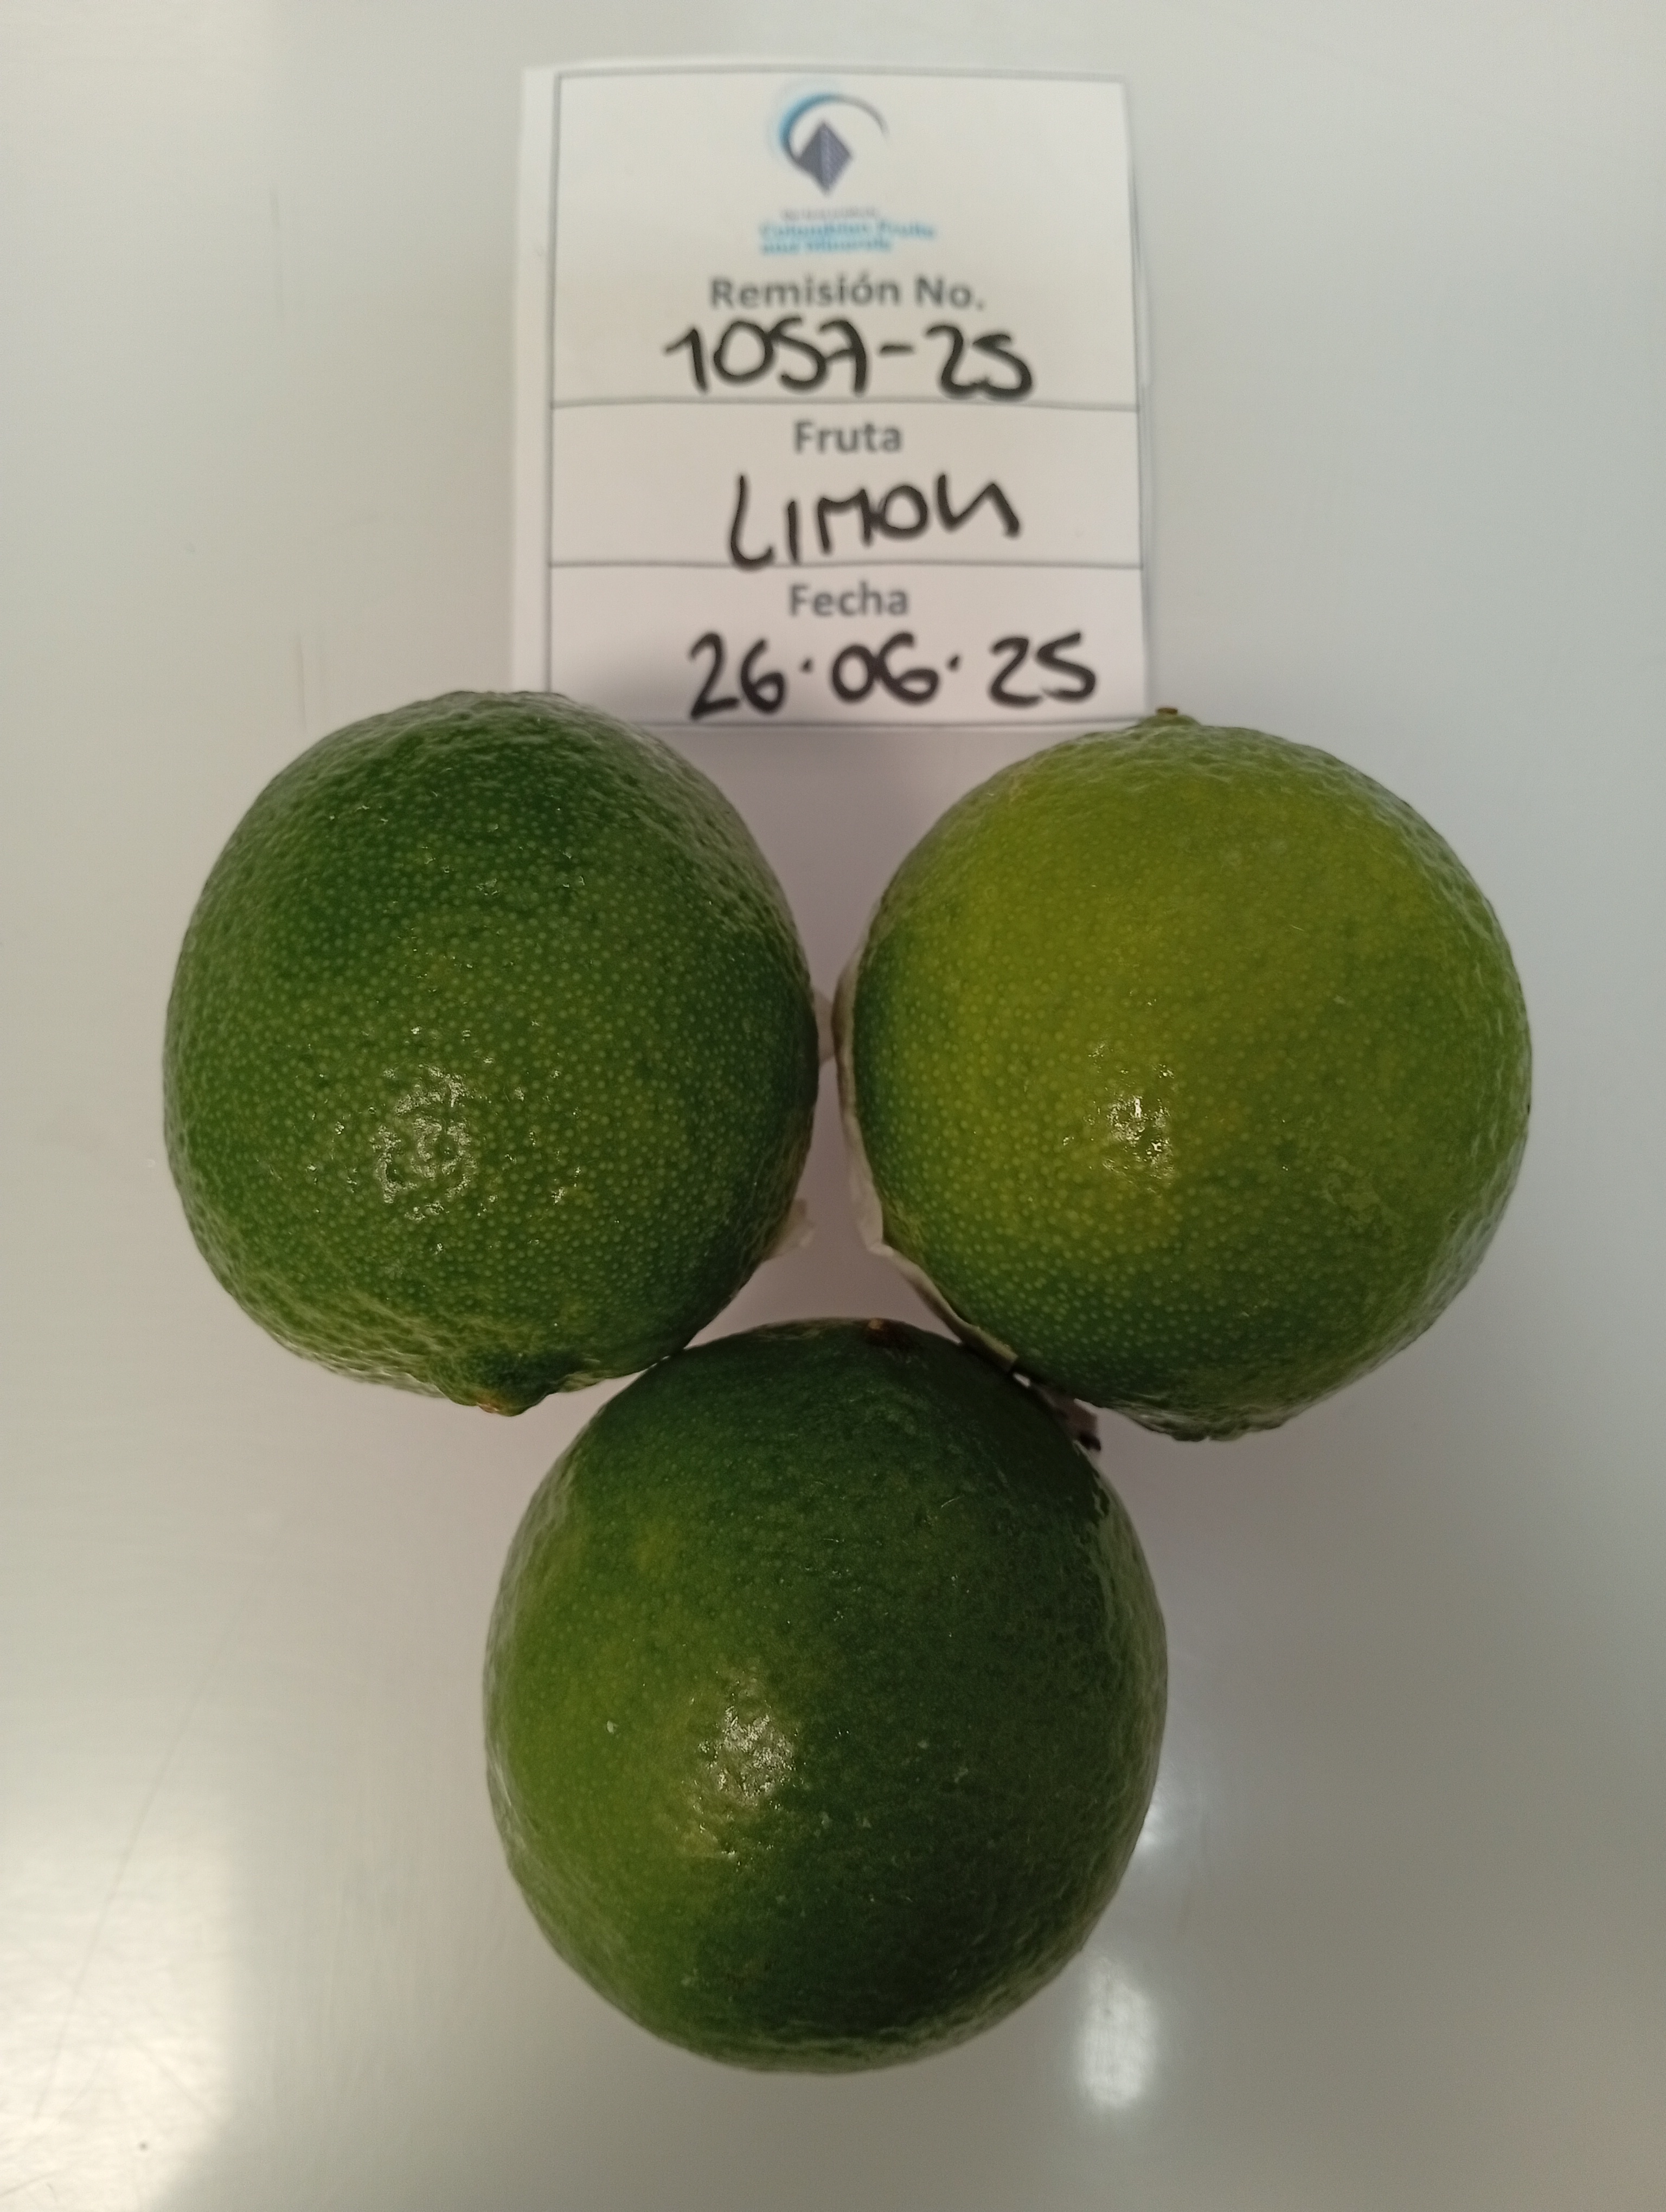 Colombian Fruits
and Minerals
Remisión No.
1057-25
Fruta
LIMON
Fecha
26·06·25